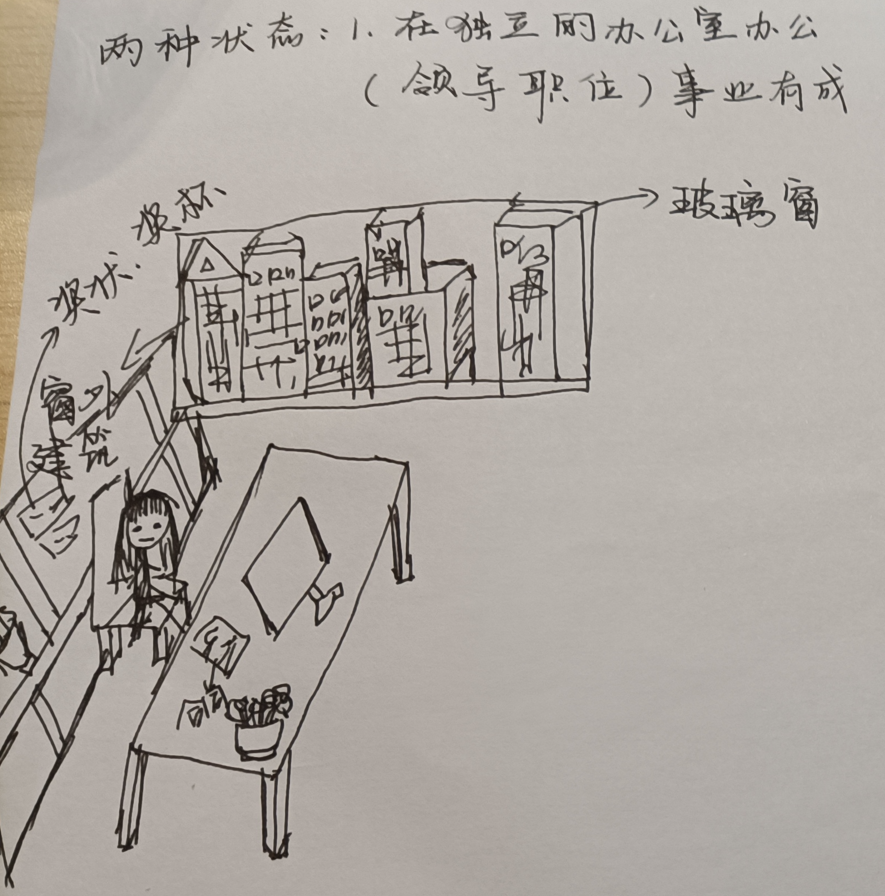 两种状态：1. 在独立的办公室办公
（领导职位）事业有成
玻璃窗
奖状. 奖杯
窗外
建筑
合同